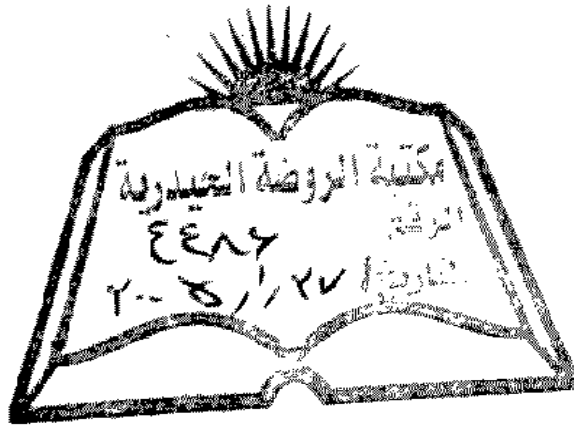 مكتبة الروضة الحيدرية
الرقم ٤٤٨٢
التاريخ ٢٧/١/٢٠٠٥